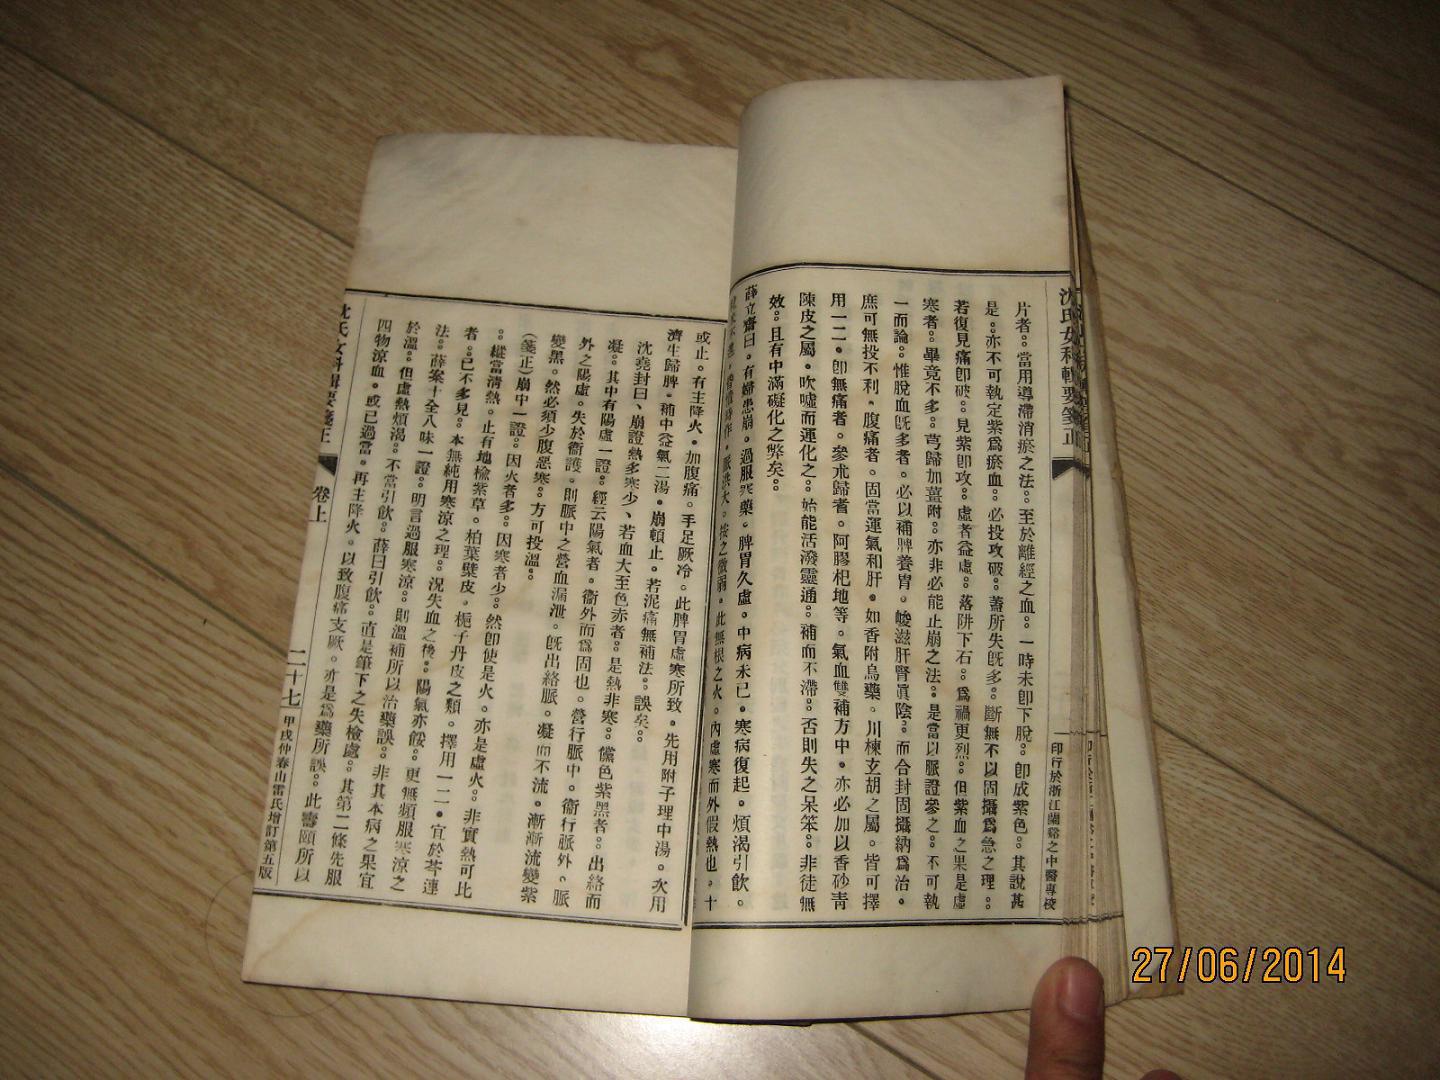 沈氏女科輯要箋正
印行於浙江蘭谿之中醫專校
片者。當用導滯消瘀之法。至於離經之血。一時未卽下脫。卽成紫色。其說甚
是。亦不可執定紫爲瘀血。必投攻破。蓋所失旣多。斷無不以固攝爲急之理。
若復見痛卽破。見紫卽攻。虛者益虛。落阱下石。爲禍更烈。但紫血之果是虛
寒者。畢竟不多。芎歸加薑附。亦非必能止崩之法。是當以脈證參之。不可執
一而論。惟脫血旣多者。必以補脾養胃。峻滋肝腎眞陰。而合封固攝納爲治。
庶可無投不利。腹痛者。固當運氣和肝。如香附烏藥。川楝玄胡之屬。皆可擇
用一二。卽無痛者。參朮歸耆。阿膠杞地等。氣血雙補方中。亦必加以香砂靑
陳皮之屬。吹噓而運化之。始能活潑靈通。補而不滯。否則失之呆笨。非徒無
效。且有中滿礙化之弊矣。
薛立齋曰。有婦患崩。過服寒藥。脾胃久虛。中病未已。寒病復起。煩渴引飲。
脈洪大。按之微弱。此無根之火。內虛寒而外假熱也。十
或止。有主降火。加腹痛。手足厥冷。此脾胃虛寒所致。先用附子理中湯。次用
濟生歸脾。補中益氣二湯。崩頓止。若泥痛無補法。誤矣。
沈堯封曰、崩證熱多寒少、若血大至色赤者。是熱非寒。儻色紫黑者。出絡而
凝。其中有陽虛一證。經云陽氣者。衞外而爲固也。營行脈中。衞行脈外。脈
外之陽虛。失於衞護。則脈中之營血漏泄。旣出絡脈。凝而不流。漸漸流變紫
變黑。然必須少腹惡寒。方可投溫。
(箋正)崩中一證。因火者多。因寒者少。然卽使是火。亦是虛火。非實熱可比
。縱當清熱。止有地楡紫草。柏葉蘗皮。梔子丹皮之類。擇用一二。宜於芩連
者。已不多見。本無純用寒涼之理。況失血之後。陽氣亦餒。更無頻服寒涼之
法。薛案十全八味一證。明言過服寒涼。則溫補所以治藥誤。非其本病之果宜
於溫。但虛熱煩渴。不當引飲。薛曰引飲。直是筆下之失檢處。其第二條先服
四物涼血。或已過當。再主降火。以致腹痛支厥。亦是爲藥所誤。此壽頤所以
沈氏女科輯要箋正
卷上
二十七
甲戌仲春山雷氏增訂第五版
27/06/2014